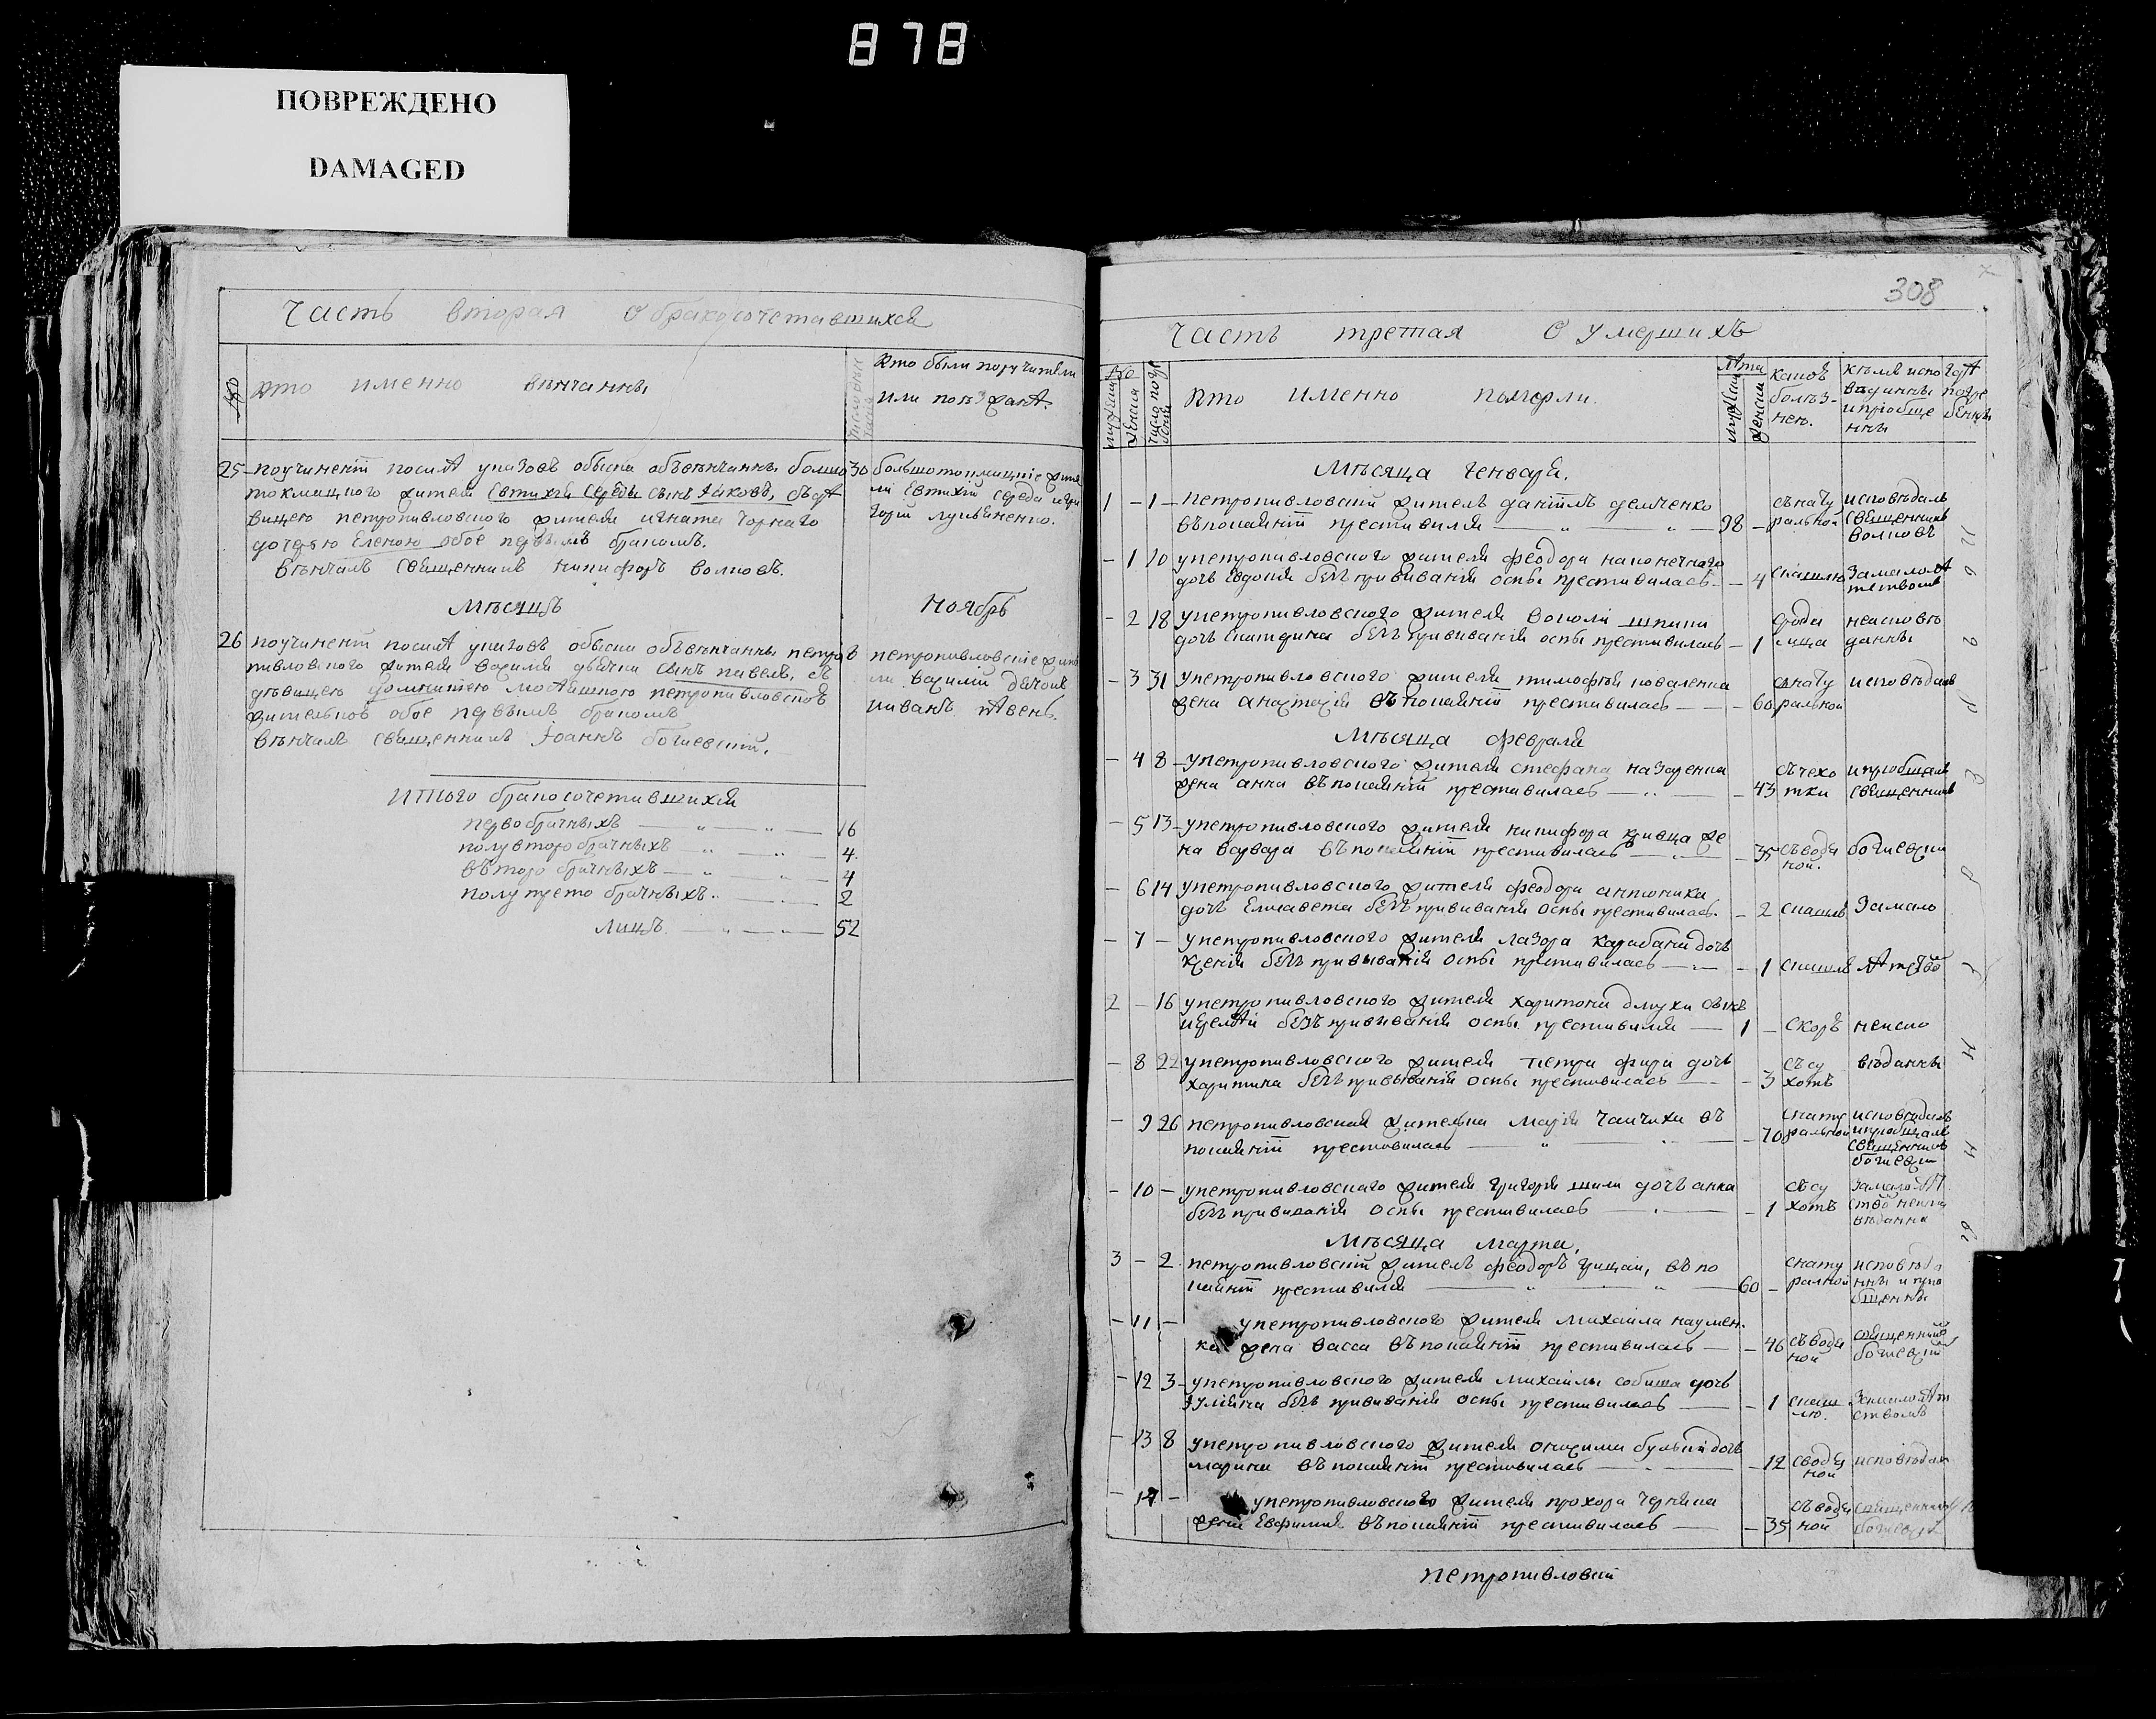 878
ПОВРЕЖДЕНО
DAMAGED
Часть вторая О бракосочетавшихся
№
кто именно венчанны
Кто были поручители
или поезжанѣ.
25 поучиненіи послѣ указовъ обыска обвѣнчанны болшо 30
токмацкого жителя Евтихія Середы сынъ Іаковъ, съдѣ
вицею петропавловского жителя игната чорнаго
дочерью Еленою обое первымъ бракомъ.
вѣнчалъ священникъ никифоръ волковъ.
большотокмацкіе жите
лі Евтихій Середа игри
горій лукьяненко.
Мѣсяцъ Ноябрь
26 поучиненіи послѣ указовъ обыска обвѣнчанны петро 8
павловского жителя василия дьячка сынъ павелъ, съ
дѣвицею
обое первымъ бракомъ
вѣнчалъ священникъ Іоаннъ богаевскій.
петропавловскіе жите
ли василій дьячокъ
ииванъ
Итого бракосочетавшихся
первобрачныхъ 16
полувторобрачныхъ 4
вѣторобрачныхъ 4
полутретобрачныхъ 2
лицъ 52
308
Часть третая О умершихъ
№
Лѣта
кто именно померли.
какой
болѣз-
нею.
кѣмъ испо
вѣданны
ипріобще
нны
гдѣ
погре
бенны
Мѣсяца Генваря.
1 – 1 – петропавловскій житель даніилъ демченко
въпокаяніи преставился 98 –
сънату
ральной
исповѣдалъ
священникъ
волковъ
– 1 10 упетропавловского жителя феодора наконечного
дочь Евдокия безъ прививанія оспы преставилась – 4
скашлю
Замалолѣ
тством
– 2 18 упетропавловского жителя шпака
дочь безъ прививанія оспы преставилась – 1
неисповѣ
данны
– 3 31 упетропавловского жителя тимофѣя коваленка
жена анастасія въ покаяніи преставилась – 60
снату
ральной
исповѣдалъ
Мѣсяца февраля
– 4 8 – упетропавловского жителя стефана назаренка
жена анна въпокаяніи преставилась – 43
съчехо
тки
ипріобщалъ
священникъ
– 5 13 – упетропавловского жителя никифора кривца же
на варвара въпокаяніи преставилась – 35
съводя
ной.
богаевскій
– 6 14 упетропавловского жителя феодора антоника
дочь Елисавета безъ прививанія оспы преставилась. – 2
скашлю
Замало
– 7 – упетропавловского жителя лазора карабана дочь
ксенія безъ прививанія оспы преставилась – 1
скашлю
лѣтство
2 – 16 упетропавловского жителя харитона сынъ
безъ прививанія оспы преставился 1 –
скоръ
неиспо
– 8 22 упетропавловского жителя петра дочь
харитина безъ прививанія оспы преставилась – 3
съсу
хотъ
вѣданны
– 9 26 петропавловская жителька марія чайчиха въ
покаяніи преставилась – 70
снату
ральной
исповѣдалъ
ипріобщалъ
священникъ
богаевскій
– 10 – упетропавловскаго жителя григорія шила дочь анна
безъ прививанія оспы преставилась – 1
съсу
хотъ
замалолѣт
ство неиспо
вѣданна
Мѣсяца марта,
3 – 2 петропавловскій житель феодоръ грицай, въ по
каяніи преставился 60 –
снату
ралной
исповѣда
нны и прио
бщенны
– 11 – упетропавловского жителя михаила наумен-
ка жена васса въпокаяніи преставилась – 46
съводя
ной
священникъ
богаевскій
– 12 3 – упетропавловского жителя михайлы дочь
Іуліяна безъ прививанія оспы преставилась – 1
скаш
лю.
Замалолѣт
ством
– 13 8 упетропавловского жителя дочь
марина въ покаяніи преставилась – 12
сводя
ной
исповѣдал
– 14 – упетропавловского жителя прохора
жена Евфимия въпокаяніи преставилась – 35
съводя
ной
священникъ
богаевскій
петропавловскій